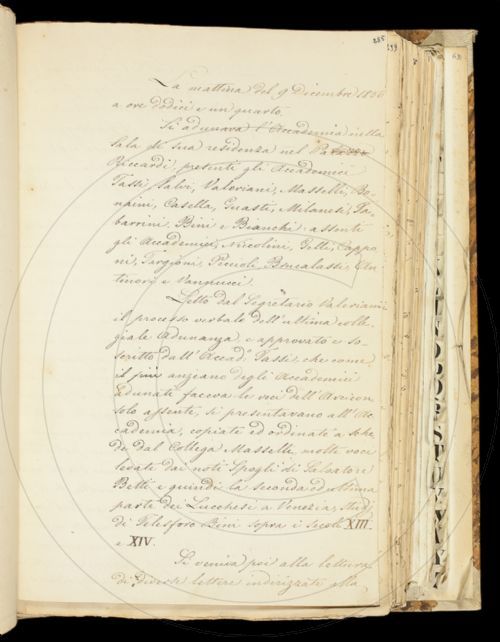 285
199
La mattina del 9 Dicembre 1856
a ore dodici e un quarto.
Si adunava l'Accademia nella
Sala di sua residenza nel Palazzo
Riccardi, presenti gli Accademici
Tassi, Salvi, Valeriani, Masselli, Bo-
naini, Casella, Guasti, Milanesi, Ta-
barrini, Bini e Bianchi: assenti
gli Accademici, Niccolini, Gelli, Cappo-
ni, Targioni, Piccioli, Boncalassi, An-
tinori e Vannucci.
Letto dal Segretario Valeriani
il processo verbale dell'ultima colle-
giale Adunanza, e approvato e so-
scritto dall'Accad. Tassi, che come
il più anziano degli Accademici
adunati faceva le veci dell'Arcicon-
solo assente, si presentavano all'Ac-
cademia, copiate ed ordinate a sche-
de dal Collega Masselli, molte voci
levate dai noti Spogli di Salvatore
Betti, e quindi la seconda ed ultima
parte dei Lucchesi a Venezia, Studi
di Telesforo Bini sopra i Secoli XIII.
e XIV.
Si veniva poi alla lettura
di diverse lettere indirizzate alla